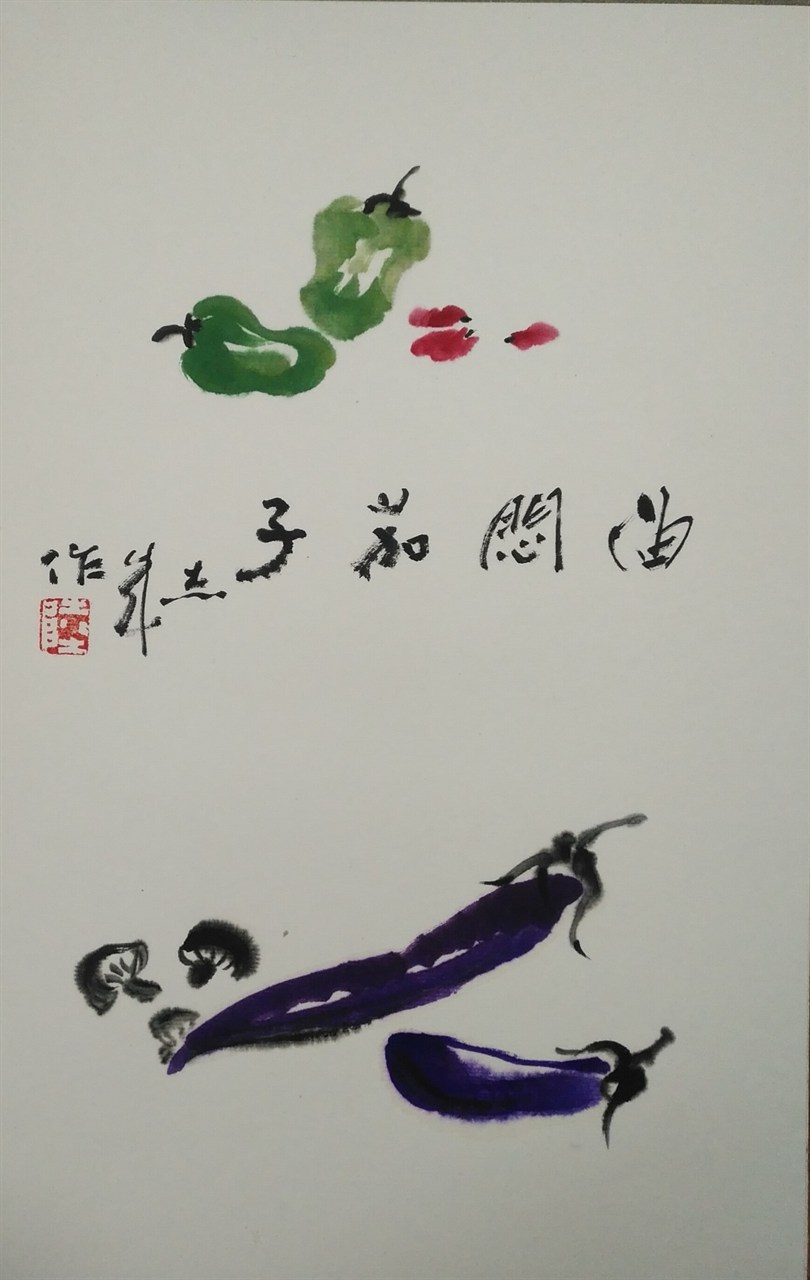 油悶茄子
作